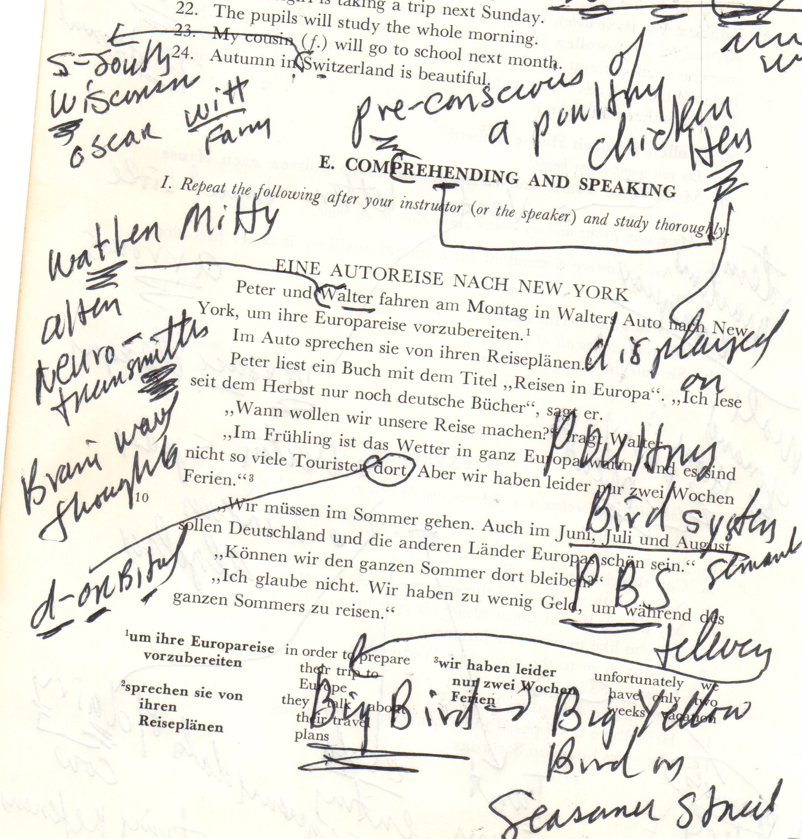 is taking a trip next Sunday.
22. The pupils will study the whole morning.
23. My cousin (f.) will go to school next month.
24. Autumn in Switzerland is beautiful.
S-South
Wisconsin
Oscar Witt
Farm
pre-conscious of
a poultry
chicken
Hen
E. COMPREHENDING AND SPEAKING
I. Repeat the following after your instructor (or the speaker) and study thoroughly.
Walter Mitty
alter
Neuro-
transmitters
Brain wave
thoughts
d-orbital
EINE AUTOREISE NACH NEW YORK
Peter und Walter fahren am Montag in Walters Auto nach New
York, um ihre Europareise vorzubereiten.¹
Im Auto sprechen sie von ihren Reiseplänen.
Peter liest ein Buch mit dem Titel „Reisen in Europa“. „Ich lese
seit dem Herbst nur noch deutsche Bücher“, sagt er.
„Wann wollen wir unsere Reise machen?“ fragt Walter.
„Im Frühling ist das Wetter in ganz Europa warm, und es sind
nicht so viele Touristen dort. Aber wir haben leider nur zwei Wochen
Ferien.“³
10
„Wir müssen im Sommer gehen. Auch im Juni, Juli und August
sollen Deutschland und die anderen Länder Europas schön sein.“
„Können wir den ganzen Sommer dort bleiben?“
„Ich glaube nicht. Wir haben zu wenig Geld, um während des
ganzen Sommers zu reisen.“
displayed
on
Poultry
Bird System
PBS
¹um ihre Europareise vorzubereiten
in order to prepare their trip to Europe
²sprechen sie von ihren Reiseplänen
they talk about their travel plans
³wir haben leider nur zwei Wochen Ferien
unfortunately we have only two weeks vacation
Big Bird → Big Yellow
Bird on
Seasame Street